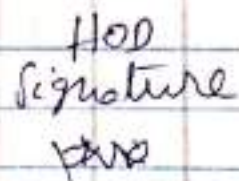 HOD
Signature